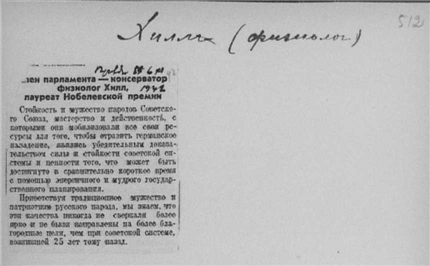 Хилл (физиолог)
512
1942
лен парламента — консерватор
физиолог Хилл,
лауреат Нобелевской премии
Стойкость и мужество народов Советско-
го Союза, мастерство и действенность, с
которыми они мобилизовали все свои ре-
сурсы для того, чтобы отразить германское
нападение, явились убедительным доказа-
тельством силы и стойкости советской си-
стемы и ценности того, что может быть
достигнуто в сравнительно короткое время
с помощью энергичного и мудрого государ-
ственного планирования.
Приветствуя традиционное мужество и
патриотизм русского народа, мы знаем, что
эти качества никогда не сверкали более
ярко и не были направлены на более бла-
городные цели, чем при советской системе,
возникшей 25 лет тому назад.